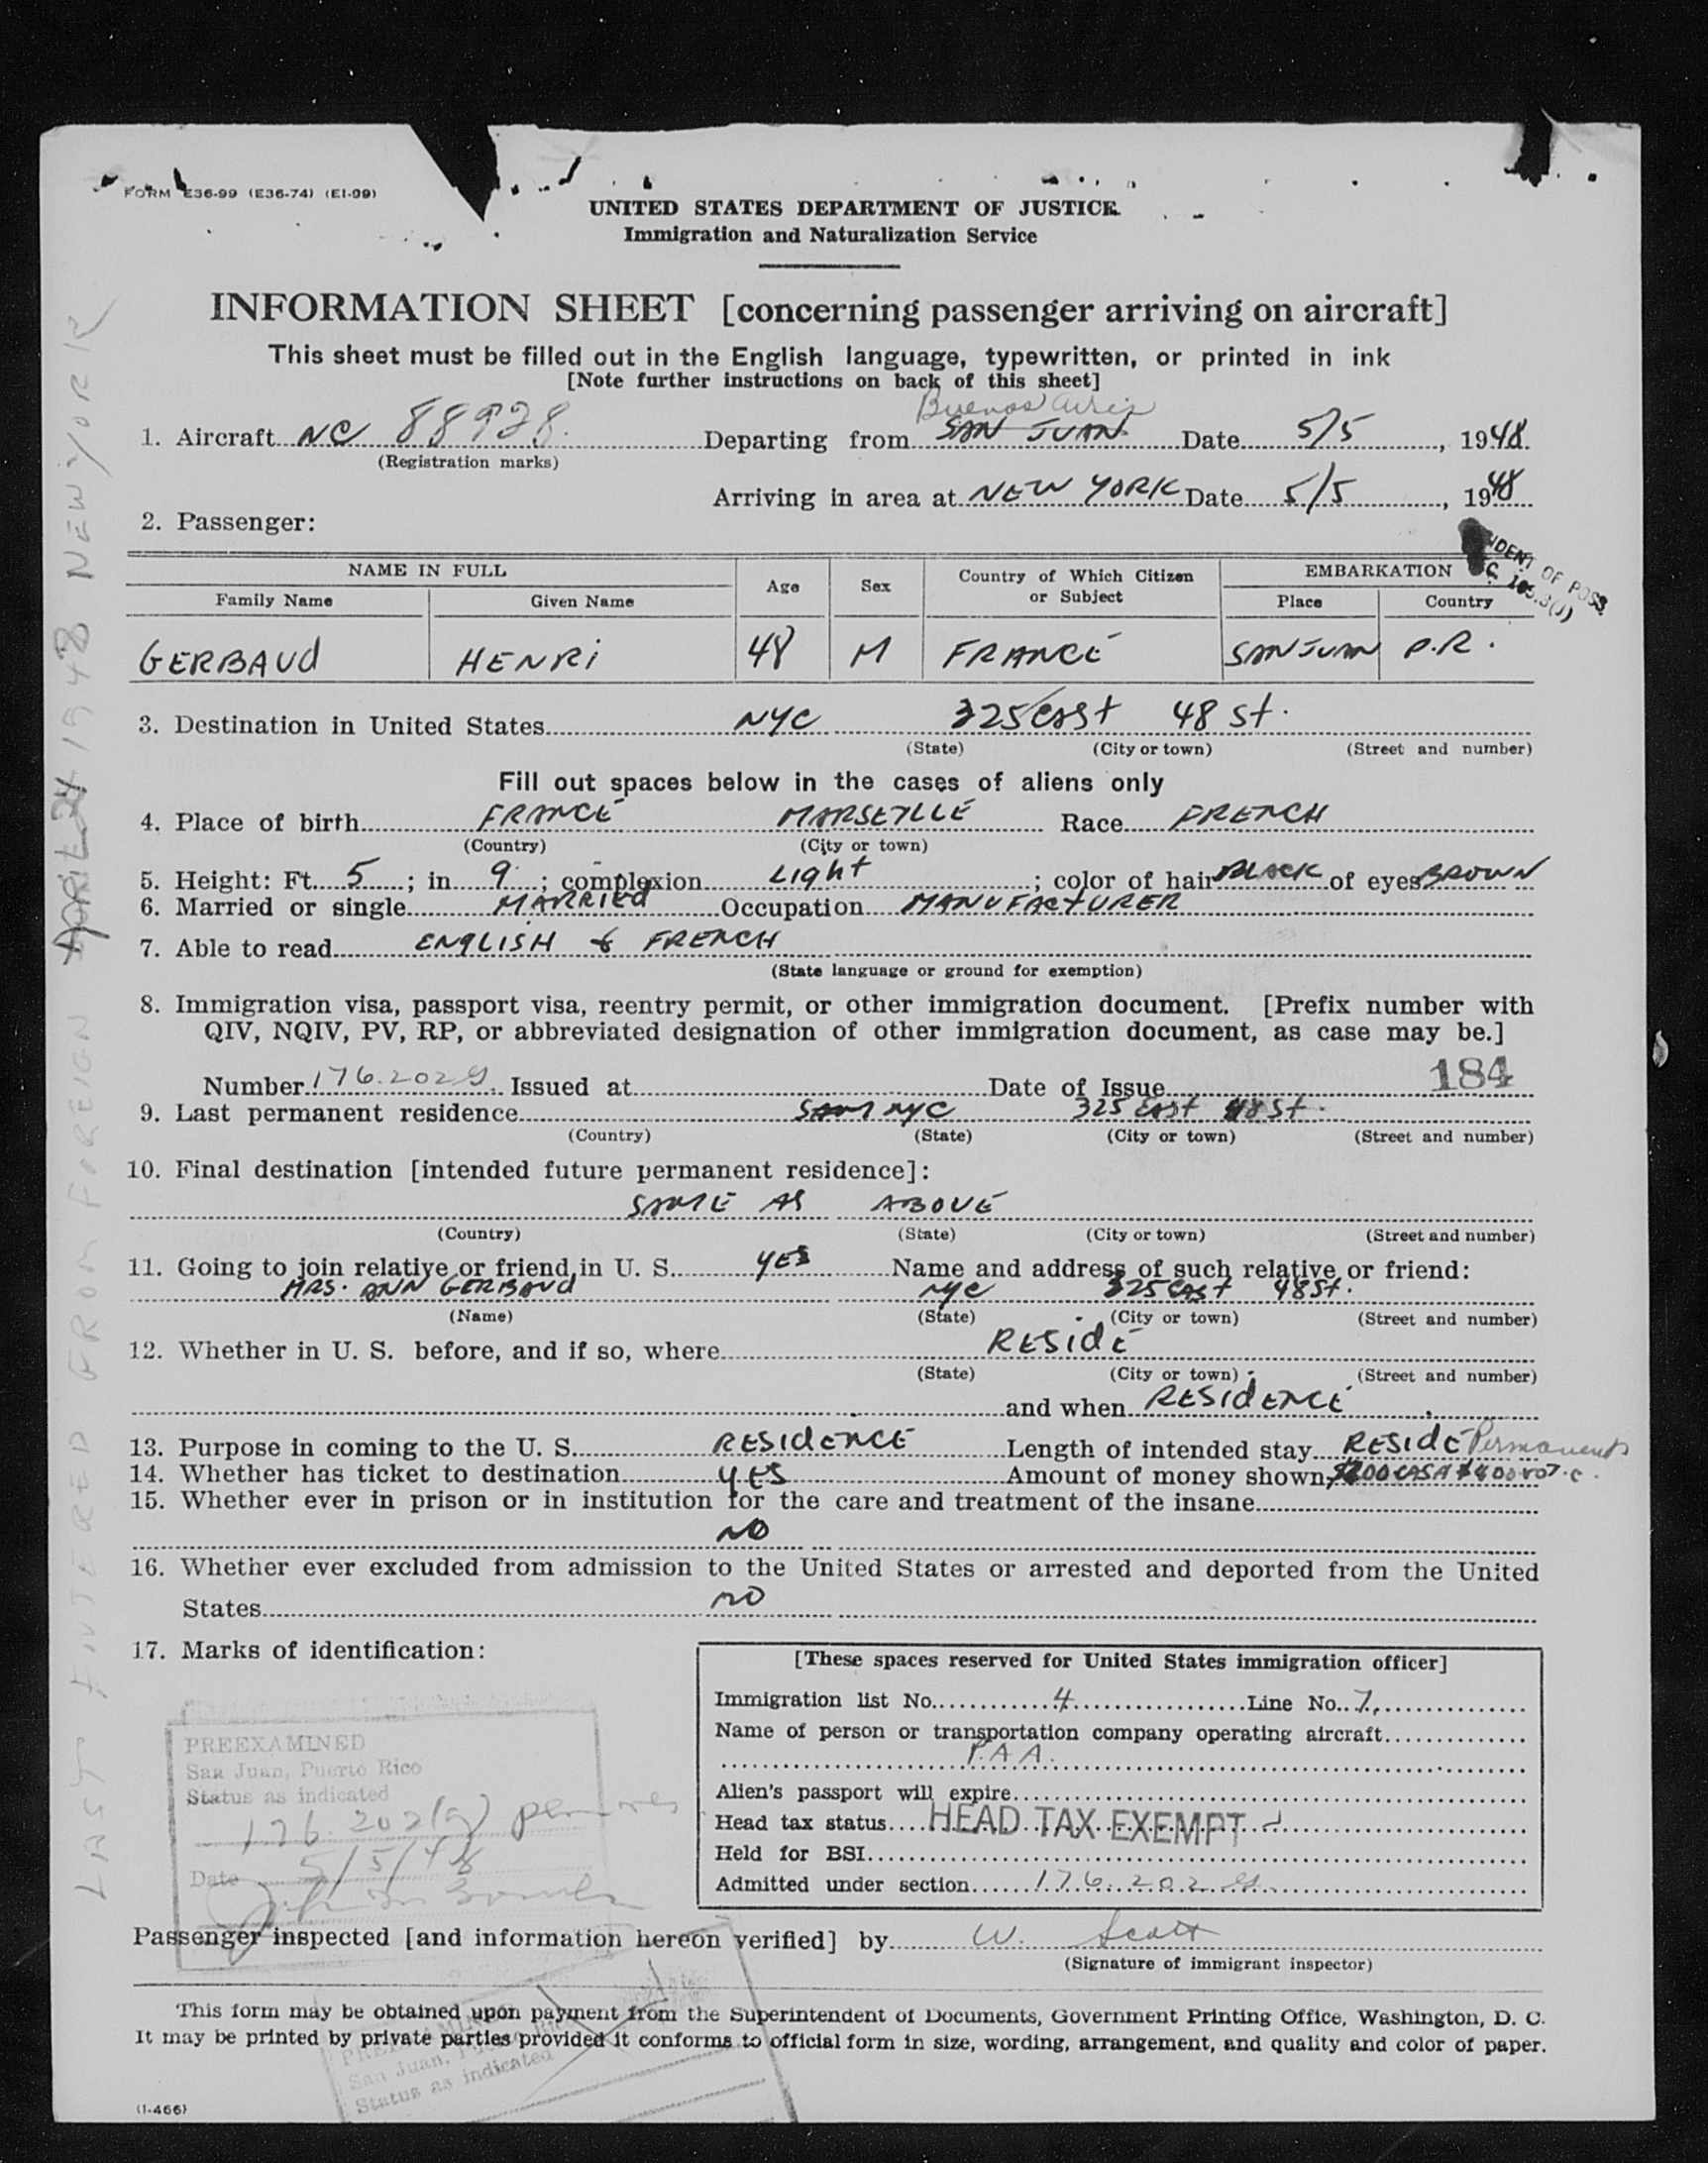 FORM E36-99 (E36-74) (E1-99)
UNITED STATES DEPARTMENT OF JUSTICE
Immigration and Naturalization Service
INFORMATION SHEET [concerning passenger arriving on aircraft]
This sheet must be filled out in the English language, typewritten, or printed in ink
[Note further instructions on back of this sheet]
Buenos Aires
1. Aircraft NC 88928. Departing from SAN JUAN Date 5/5, 1948.
(Registration marks)
Arriving in area at NEW YORK Date 5/5, 1948
2. Passenger:
OF POSS.
NAME IN FULL Age Sex Country of Which Citizen or Subject EMBARKATION
Family Name Given Name Place Country
GERBAUD HENRI 48 M FRANCE SAN JUAN P.R.
3. Destination in United States NYC 325 EAST 48 St.
(State) (City or town) (Street and number)
Fill out spaces below in the cases of aliens only
4. Place of birth FRANCE MARSEYLLE Race FRENCH
(Country) (City or town)
5. Height: Ft. 5; in 9; complexion Light; color of hair BLACK of eyes BROWN
6. Married or single MARRIED Occupation MANUFACTURER
7. Able to read ENGLISH & FRENCH
(State language or ground for exemption)
8. Immigration visa, passport visa, reentry permit, or other immigration document. [Prefix number with
QIV, NQIV, PV, RP, or abbreviated designation of other immigration document, as case may be.]
184
Number 176.202 g. Issued at Date of Issue
9. Last permanent residence NYC 325 EAST 48 St.
(Country) (State) (City or town) (Street and number)
10. Final destination [intended future permanent residence]:
SAME AS ABOVE
(Country) (State) (City or town) (Street and number)
11. Going to join relative or friend in U. S. YES Name and address of such relative or friend:
MRS. ANN GERBAUD NYC 325 EAST 48 St.
(Name) (State) (City or town) (Street and number)
12. Whether in U. S. before, and if so, where RESIDE
(State) (City or town) (Street and number)
and when RESIDENCE
13. Purpose in coming to the U. S. RESIDENCE Length of intended stay RESIDE Permanent
14. Whether has ticket to destination YES Amount of money shown
15. Whether ever in prison or in institution for the care and treatment of the insane
NO
16. Whether ever excluded from admission to the United States or arrested and deported from the United
States NO
17. Marks of identification:
[These spaces reserved for United States immigration officer]
Immigration list No. 4 Line No. 7
Name of person or transportation company operating aircraft
P.A.A.
Alien's passport will expire
Head tax status HEAD TAX EXEMPT
Held for BSI
Admitted under section 176.202 g.
PREEXAMINED
San Juan, Puerto Rico
Status as indicated
176.202(g)
Date 5/5/48
Passenger inspected [and information hereon verified] by W. Scott
(Signature of immigrant inspector)
This form may be obtained upon payment from the Superintendent of Documents, Government Printing Office, Washington, D. C.
It may be printed by private parties provided it conforms to official form in size, wording, arrangement, and quality and color of paper.
San Juan,
Status as indicated
(1-466)
LAST ENTERED FROM FOREIGN APRIL 24 1948 NEW YORK